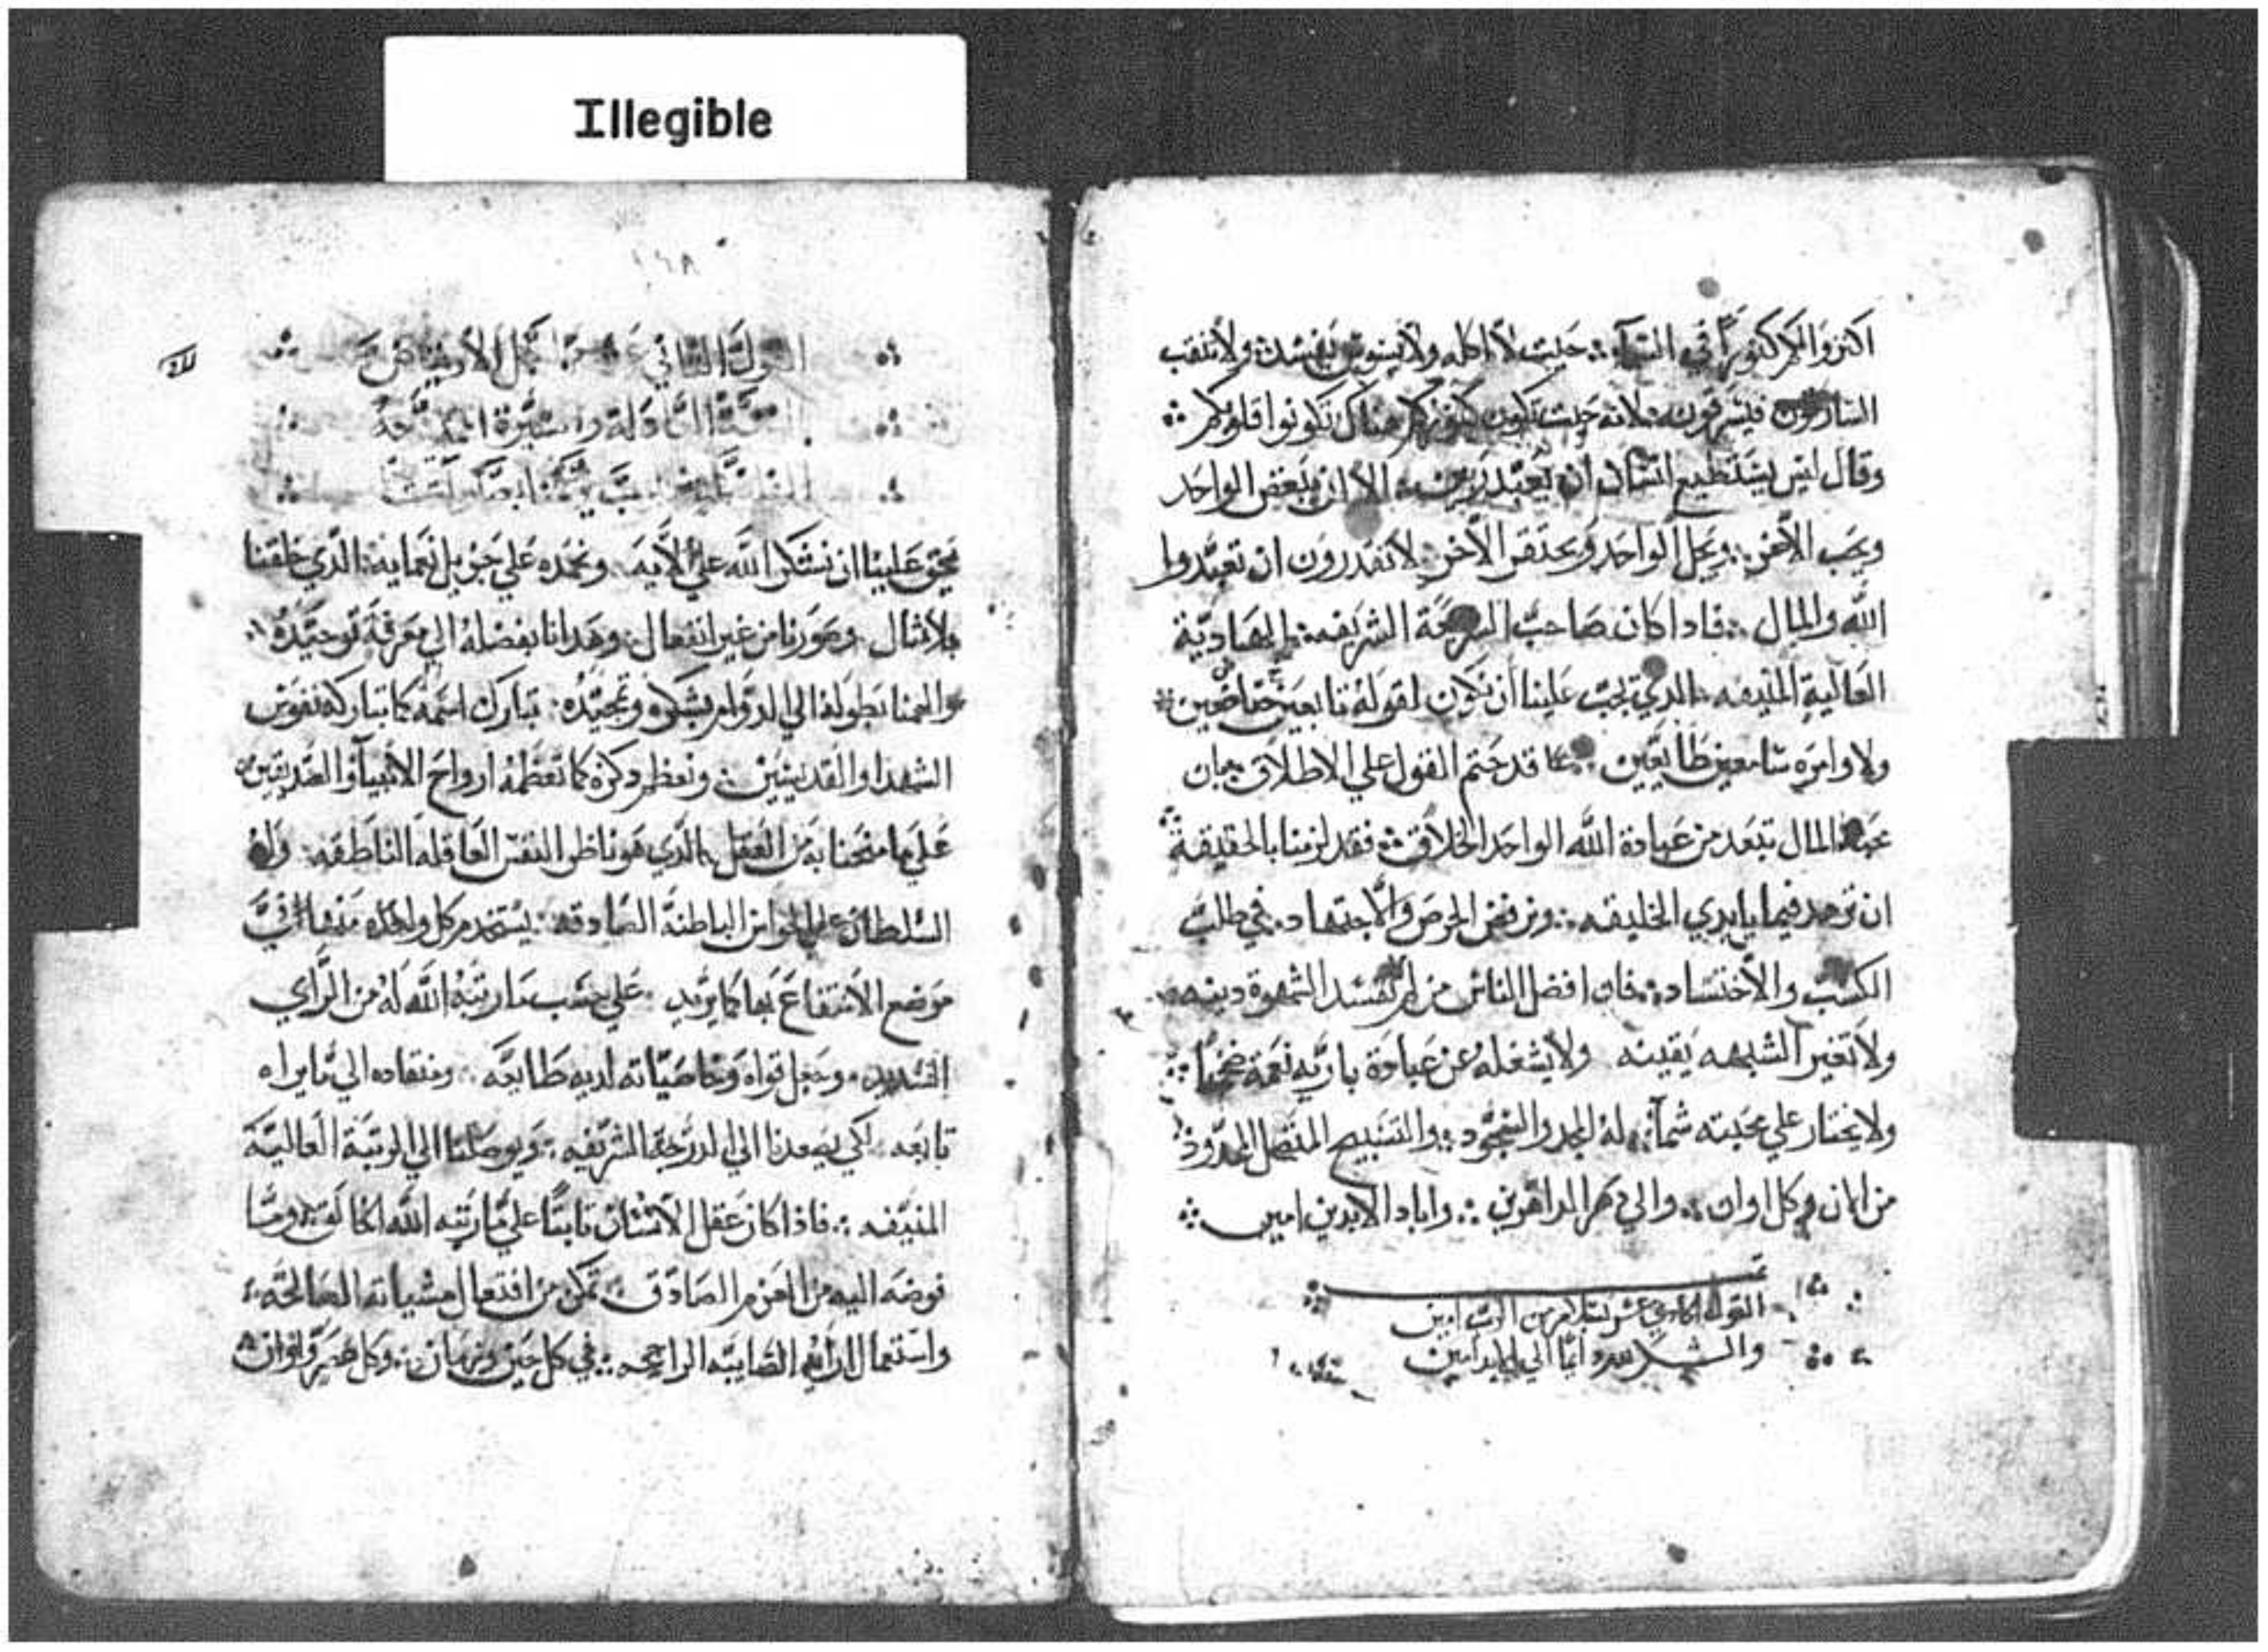 Illegible
اكنزوا لكم كنوزا في السماء ∴ حيث لا اكله ولا سوس يفسد ∴ ولا ينقب
السارقون فيسرقون ∴ لانه حيث تكون كنوزكم هناك تكونوا قلوبكم ∴
وقال ليس يستطيع انسان ان يعبد ربين ∴ الا ان يبغض الواحد
ويحب الآخر ∴ ويجل الواحد ويحتقر الآخر ∴ لا تقدرون ان تعبدوا
الله والمال ∴ فادا كان صاحب الشريعة الشريفه ∴ الهادية
العالية المنيفه ∴ الدي يجب علينا ان نكون لقوله تابعين خاضعين
ولاوامره سامعين طايعين ∴ قد حتم القول علي الاطلاق ∴ بان
محبة المال تبعد من عبادة الله الواحد الخلاق ∴ فقد لزمنا بالحقيقة
ان نزهد فيما بايدي الخليقه ∴ ونرفض الحرص والاجتهاد ∴ في طلب
الكسب والاختشاد ∴ فان افضل الناس من لم تفسد الشهوة دينه
ولا تغير الشبهه يقينه ولا يشغله عن عبادة باريه نعمة
ولا يختار علي محبته ∴ له المجد والسجود ∴ والتسبيح المتصل
من الان وكل اوان ∴ والي دهر الداهرين ∴ واباد الابدين امين ∴
القوله الحادي عشر بسلام من الرب امين
والشكر لله دايما الي الابد امين
١٤٨
القوله الثاني عشر الاربعين
يحق علينا ان نشكر الله علي الآيه ونحمده علي جزيل نعمايه ∴ الدي خلقنا
بلا مثال وصورنا من غير انفعال ∴ وهدانا بفضله الي معرفة توحيده
والهمنا بطوله الي الدوام بشكره وتمجيده ∴ تبارك اسمه كما تباركه نفوس
الشهدا والقديسين ∴ ونعظم دكره كما تعظمه ارواح الانبيا والصديقين
علي ما منحنا به من العقل ∴ الدي هو ناظر النفس العاقله الناطقه ∴ وله
السلطان علي الحواس الباطنة الصادقه ∴ يستخدم كل واحده منها في
موضع الانتفاع بها كما يريد ∴ علي حسب ما رتبه الله له من الراي
السديد ∴ وجعل قواه وخاصياته لديه طايعه ∴ ومنقاده الي ما يراه
تابعه ∴ لكي يصعدنا الي الدرجة الشريفه ∴ ويوصلنا الي الرتبة العالية
المنيفه ∴ فاذا كان عقل الانسان ثابتا علي ما رتبه الله وما
فوضه اليه من العزم الصادق ∴ تمكن من افتعال مشياته الصالحة
واستعمال ارايه الصايبه الراجحه ∴ في كل حين وزمان ∴ وكل عصر واوان